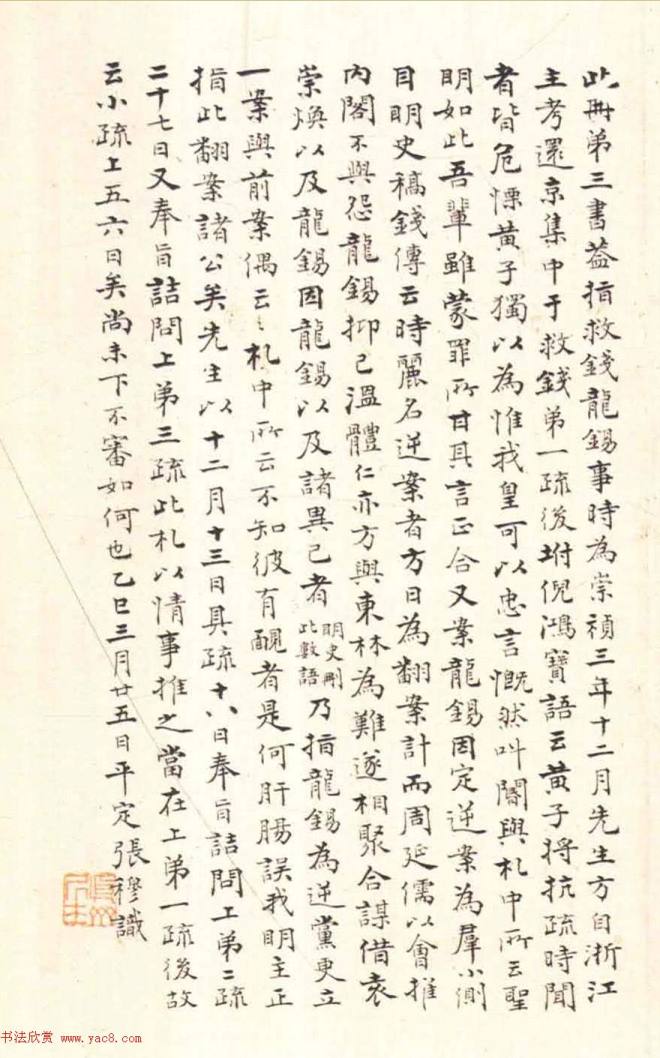 此冊弟三書葢指救錢龍錫事時為崇禎三年十二月先生方自浙江
主考還京集中于救錢弟一疏後坿倪鴻寶語云黃子將抗疏時聞
者皆危慄黃子獨以為惟我皇可以忠言慨然叫閽與札中所云聖
明如此吾輩雖蒙罪所甘具言正合又案龍錫因定逆案為羣小側
目明史稿錢傳云時麗名逆案者方日為翻案計而周延儒以會推
內閣不與怨龍錫抑己溫體仁亦方與東林為難遂相聚合謀借袁
崇煥以及龍錫因龍錫以及諸異己者明史刪此數語乃指龍錫為逆黨更立
一案與前案偶云〻札中所云不知彼有靦者是何肝腸誤我明主正
指此翻案諸公矣先生以十二月十三日具疏十八日奉旨詰問上弟二疏
二十七日又奉旨詰問上弟三疏此札以情事推之當在上弟一疏後故
云小疏上五六日矣尚未下不審如何也乙巳三月廿五日平定張穆識
书法欣赏 www.yac8.com